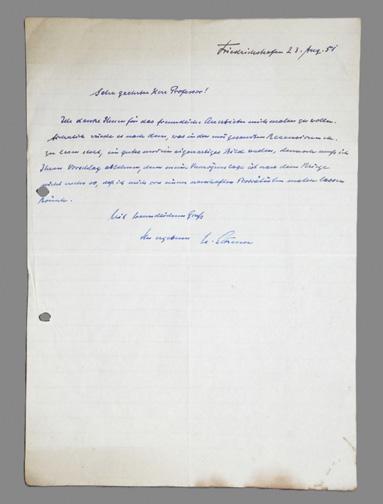 Friedrichshafen 23. Aug. 51
Sehr geehrter Herr Professor!
Ich danke Ihnen für das freundliche Anerbieten mich malen zu wollen.
Sicherlich würde es nach dem, was in den mitgesandten Rezensionen
zu lesen steht, ein gutes und ein eigenartiges Bild werden, dennoch muß ich
Ihren Vorschlag ablehnen, denn meine Vermögenslage ist nach dem Kriege
nicht mehr so, daß ich mich von einem namhaften Porträtisten malen lassen
könnte.
Mit freundlichem Gruß
Ihr ergebener